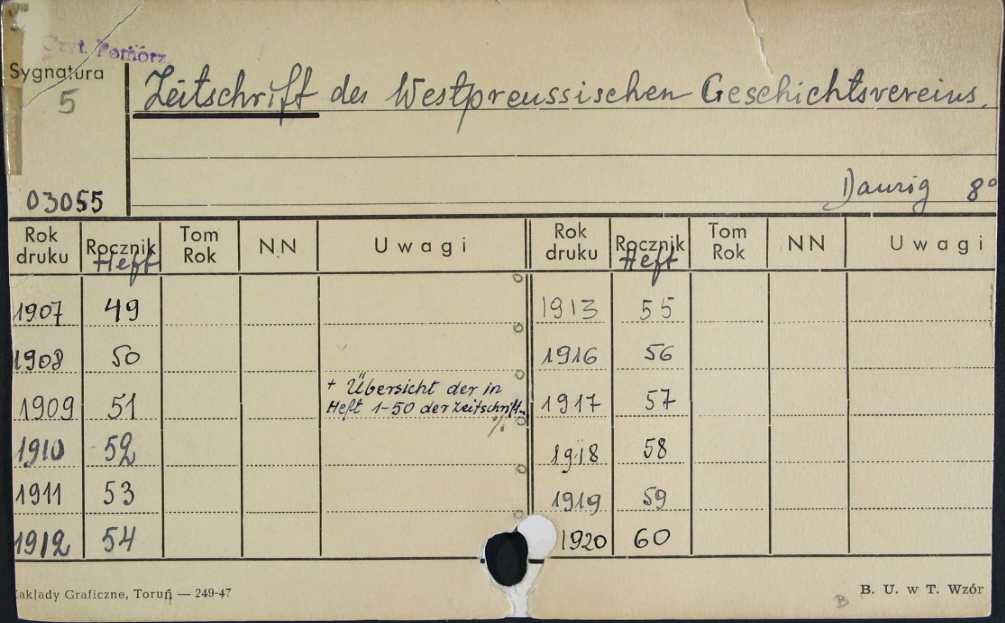 Czyt. Pomorz.
Sygnatura
5
Zeitschrift des Westpreussischen Geschichtsvereins.
Danzig 8°
03055
Rok druku Rocznik Heft Tom Rok NN Uwagi Rok druku Rocznik Heft Tom Rok NN Uwagi
1907 49 1913 55
1908 50 1916 56
1909 51 + Übersicht der in Heft 1-50 der Zeitschrift ./. 1917 57
1910 52 1918 58
1911 53 1919 59
1912 54 1920 60
Zakłady Graficzne, Toruń — 249-47
B. U. w T. Wzór
B